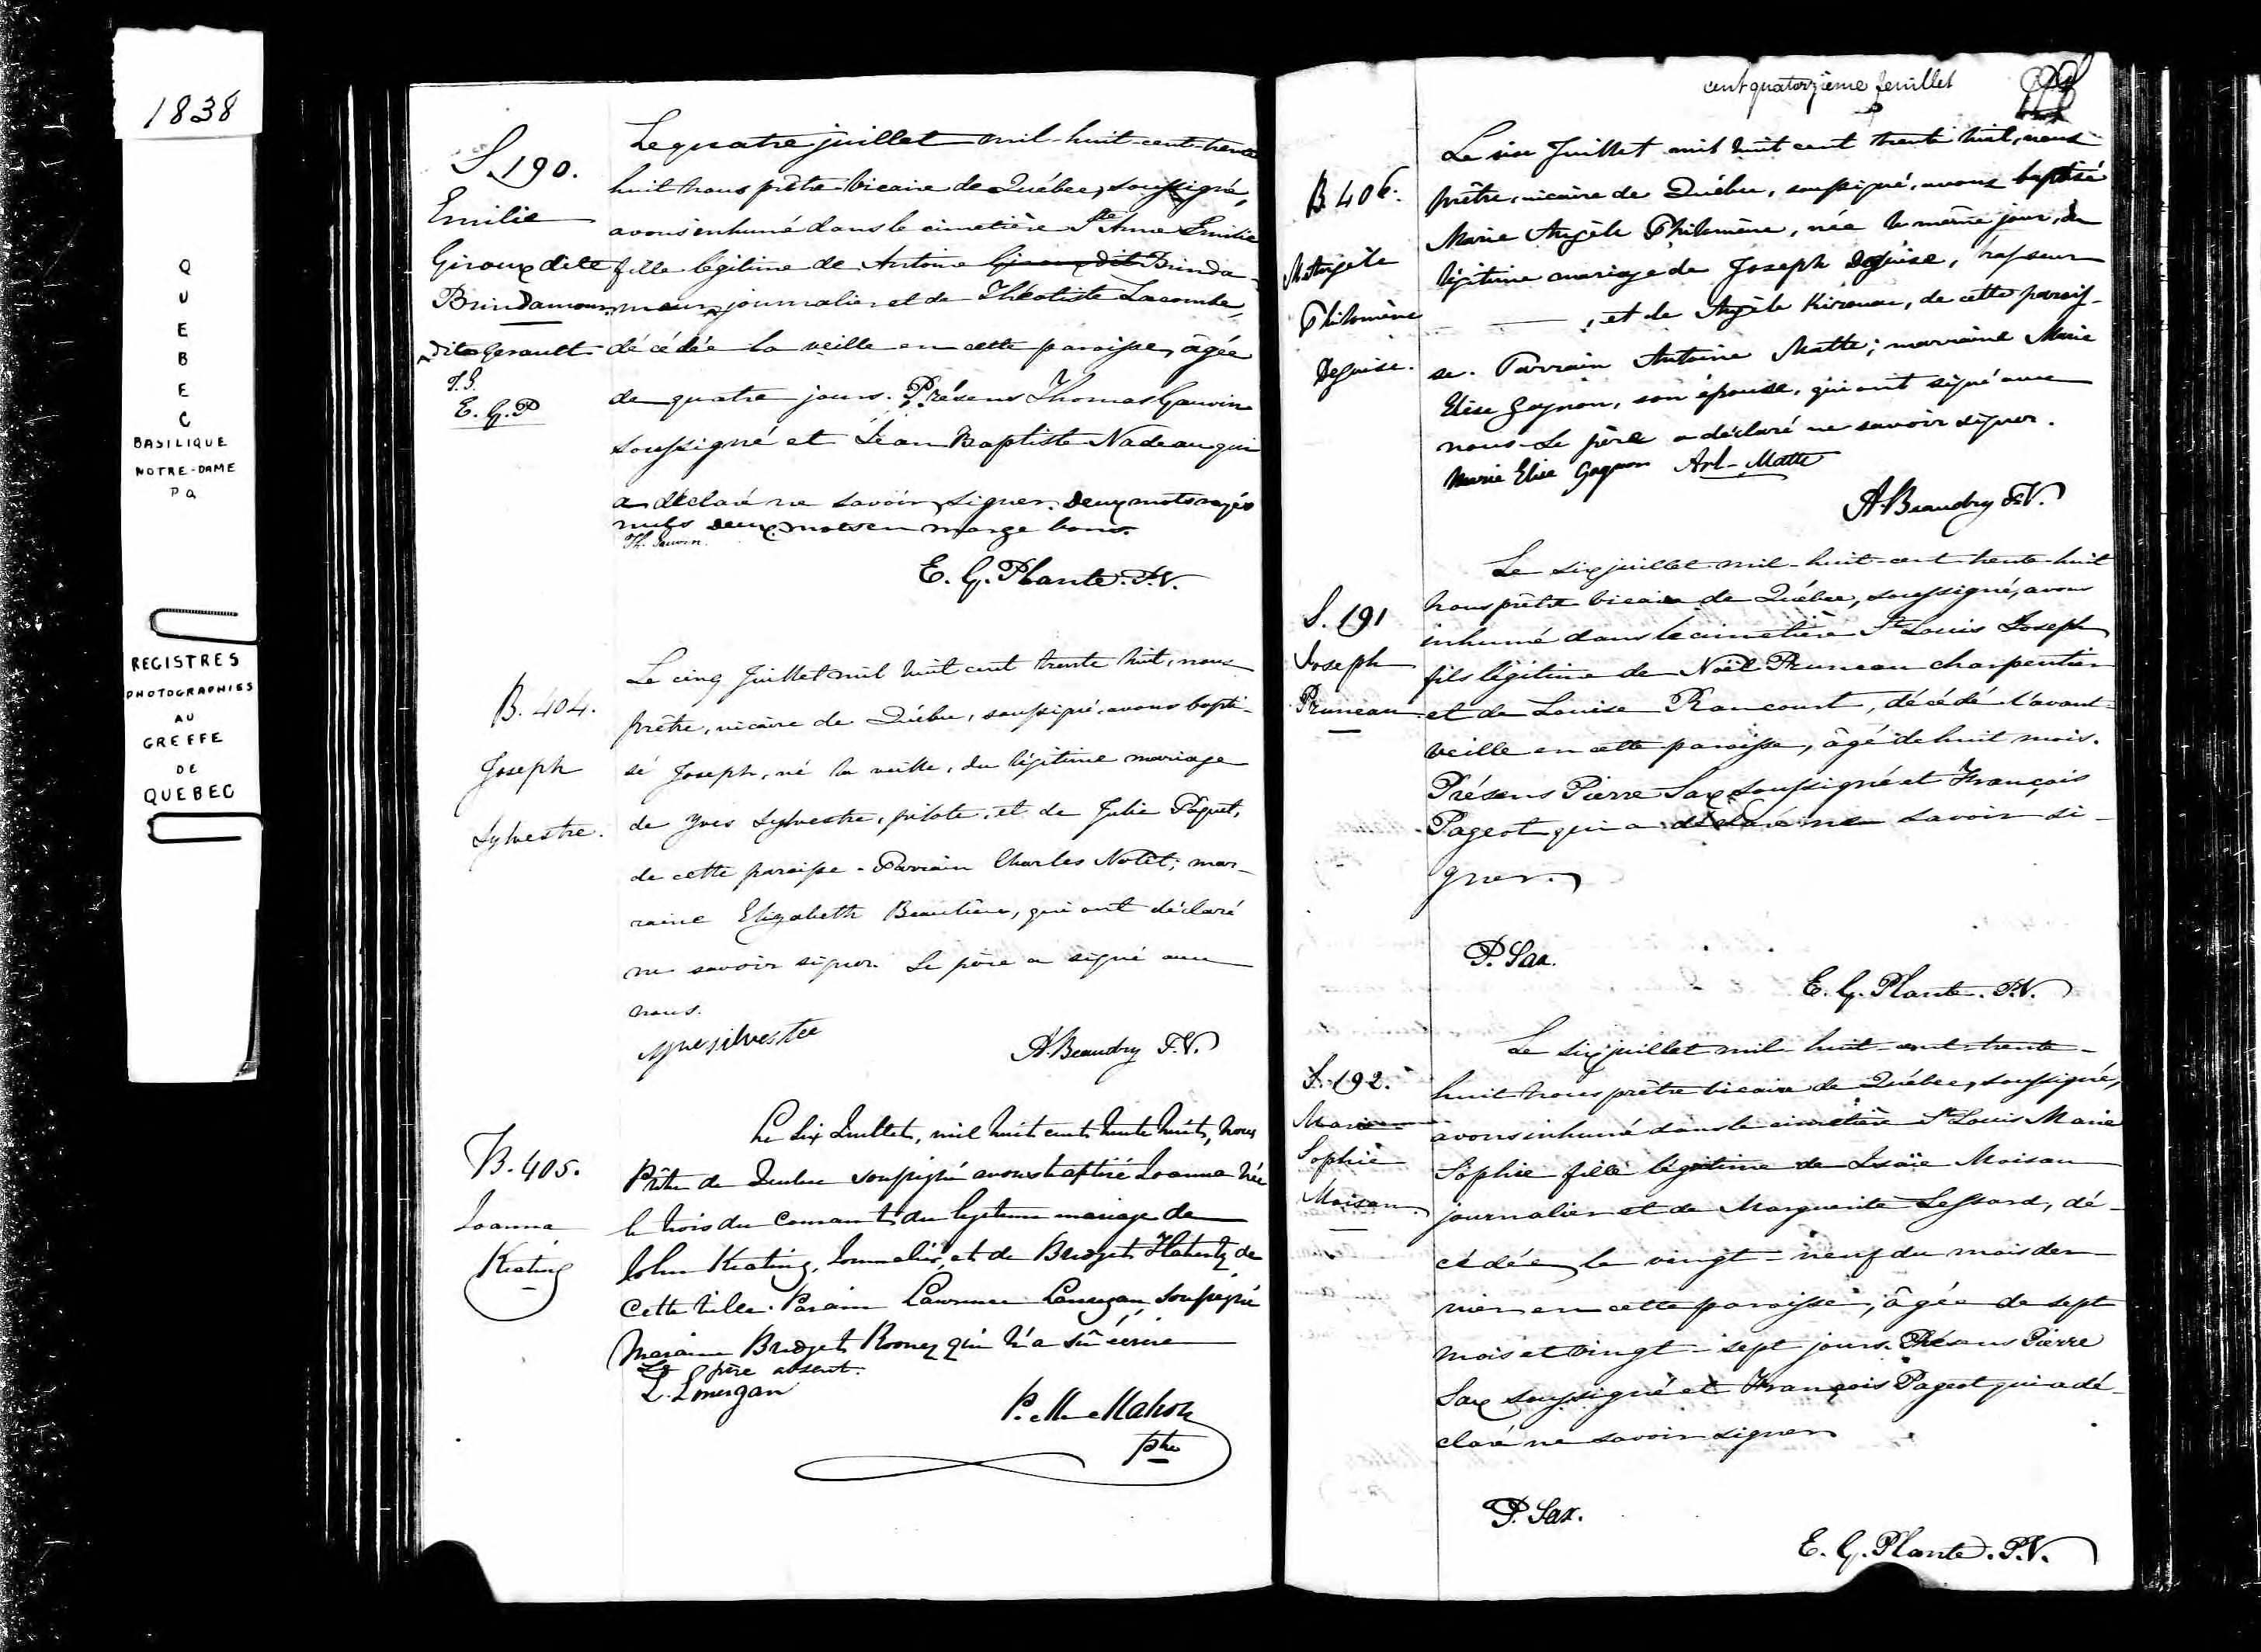 1838
QUEBEC
BASILIQUE
NOTRE-DAME
PQ
REGISTRES
PHOTOGRAPHIES
AU
GREFFE
DE
QUEBEC
S 190.
Emilie
Giroux dite
Brindamour
dite Gerault
T.G.
E. G. P
Le quatre juillet mil-huit-cent-trente
huit nous prêtre vicaire de Québec, soussigné,
avons inhumé dans le cimetière Ste Anne Emilie
fille légitime de Antoine Giroux dit Brinda-
mour, journalier et de Théotiste Lacombe,
décédée la veille en cette paroisse, âgée
de quatre jours. Présens Thomas Gauvin
soussigné et Jean Baptiste Nadeau qui
a déclaré ne savoir signer. Deux mots rayés
nuls deux mots en marge bons.
Th. Gauvin.
E. G. Plante. P.V.
B. 404.
Joseph
Sylvestre.
Le cinq Juillet mil huit cent trente huit, nous
prêtre, vicaire de Québec, soussigné, avons bapti-
sé Joseph, né la veille, du légitime mariage
de Yves Sylvestre, pilote, et de Julie Paquet,
de cette paroisse. Parrain Charles Nolet; mar-
raine Elizabeth Beaulieu, qui ont déclaré
ne savoir signer. Le père a signé avec
nous.
silvestre
A. Beaudry P.V.
B. 405.
Joanna
Keating
Le six Juillet, mil huit cent trente huit, nous
Prêtre de Quebec soussigné avons baptisé Joanna née
le trois du courant du legitime mariage de
John Keating, Journalier, et de Bridget Flaherty de
cette ville. Parain Lawrence soussigné
Maraine Bridget Rooney qui n'a sû écrire
Le père absent.
L. Lonergan
P. McMahon
Ptre
cent quatorzième feuillet
B. 406.
M. Angèle
Philomène
Deguise.
Le six Juillet mil huit cent trente huit, nous
prêtre, vicaire de Québec, soussigné, avons baptisé
Marie Angèle Philomène, née le même jour, du
légitime mariage de Joseph Deguise,
, et de Angèle Kirouac, de cette parois-
se. Parrain Antoine Matte; marraine Marie
Elise Gagnon, son épouse, qui ont signé avec
nous. Le père a déclaré ne savoir signer.
Marie Elise Gagnon Ant- Matte
A. Beaudry P.V.
S. 191
Joseph
Pruneau
Le six juillet mil-huit-cent-trente-huit
nous prêtre vicaire de Québec, soussigné, avons
inhumé dans le cimetière St Louis Joseph
fils légitime de Noël Pruneau charpentier
et de Louise Rancourt, décédé l'avant-
veille en cette paroisse, âgé de huit mois.
Présens Pierre Sax soussigné et François
Pageot qui a déclaré ne savoir si-
gner.
P. Sax.
E. G. Plante. P.V.
S. 192.
Marie
Sophie
Moisan
Le six juillet mil-huit-cent-trente-
huit nous prêtre vicaire de Québec, soussigné,
avons inhumé dans le cimetière St Louis Marie
Sophie fille légitime de Isaïe Moisan
journalier et de Marguerite Lessard, dé-
cédée le vingt-neuf du mois der-
nier en cette paroisse, âgée de sept
mois et vingt-sept jours. Présens Pierre
Sax soussigné et François Pageot qui a dé-
claré ne savoir signer
P. Sax.
E. G. Plante. P.V.